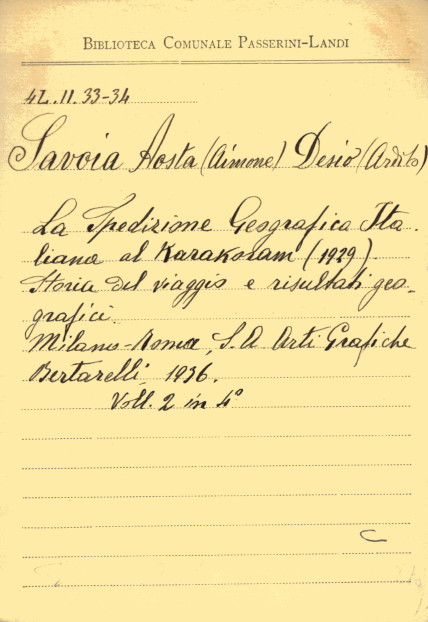 BIBLIOTECA COMUNALE PASSERINI-LANDI
4L.II.33-34
Savoia Aosta (Aimone) Desio (Ardito)
La Spedizione Geografica Ita-
liana al Karakoram (1929).
Storia del viaggio e risultati geo-
grafici.
Milano-Roma, S.A Arti Grafiche
Bertarelli, 1936.
Voll. 2 in 4°